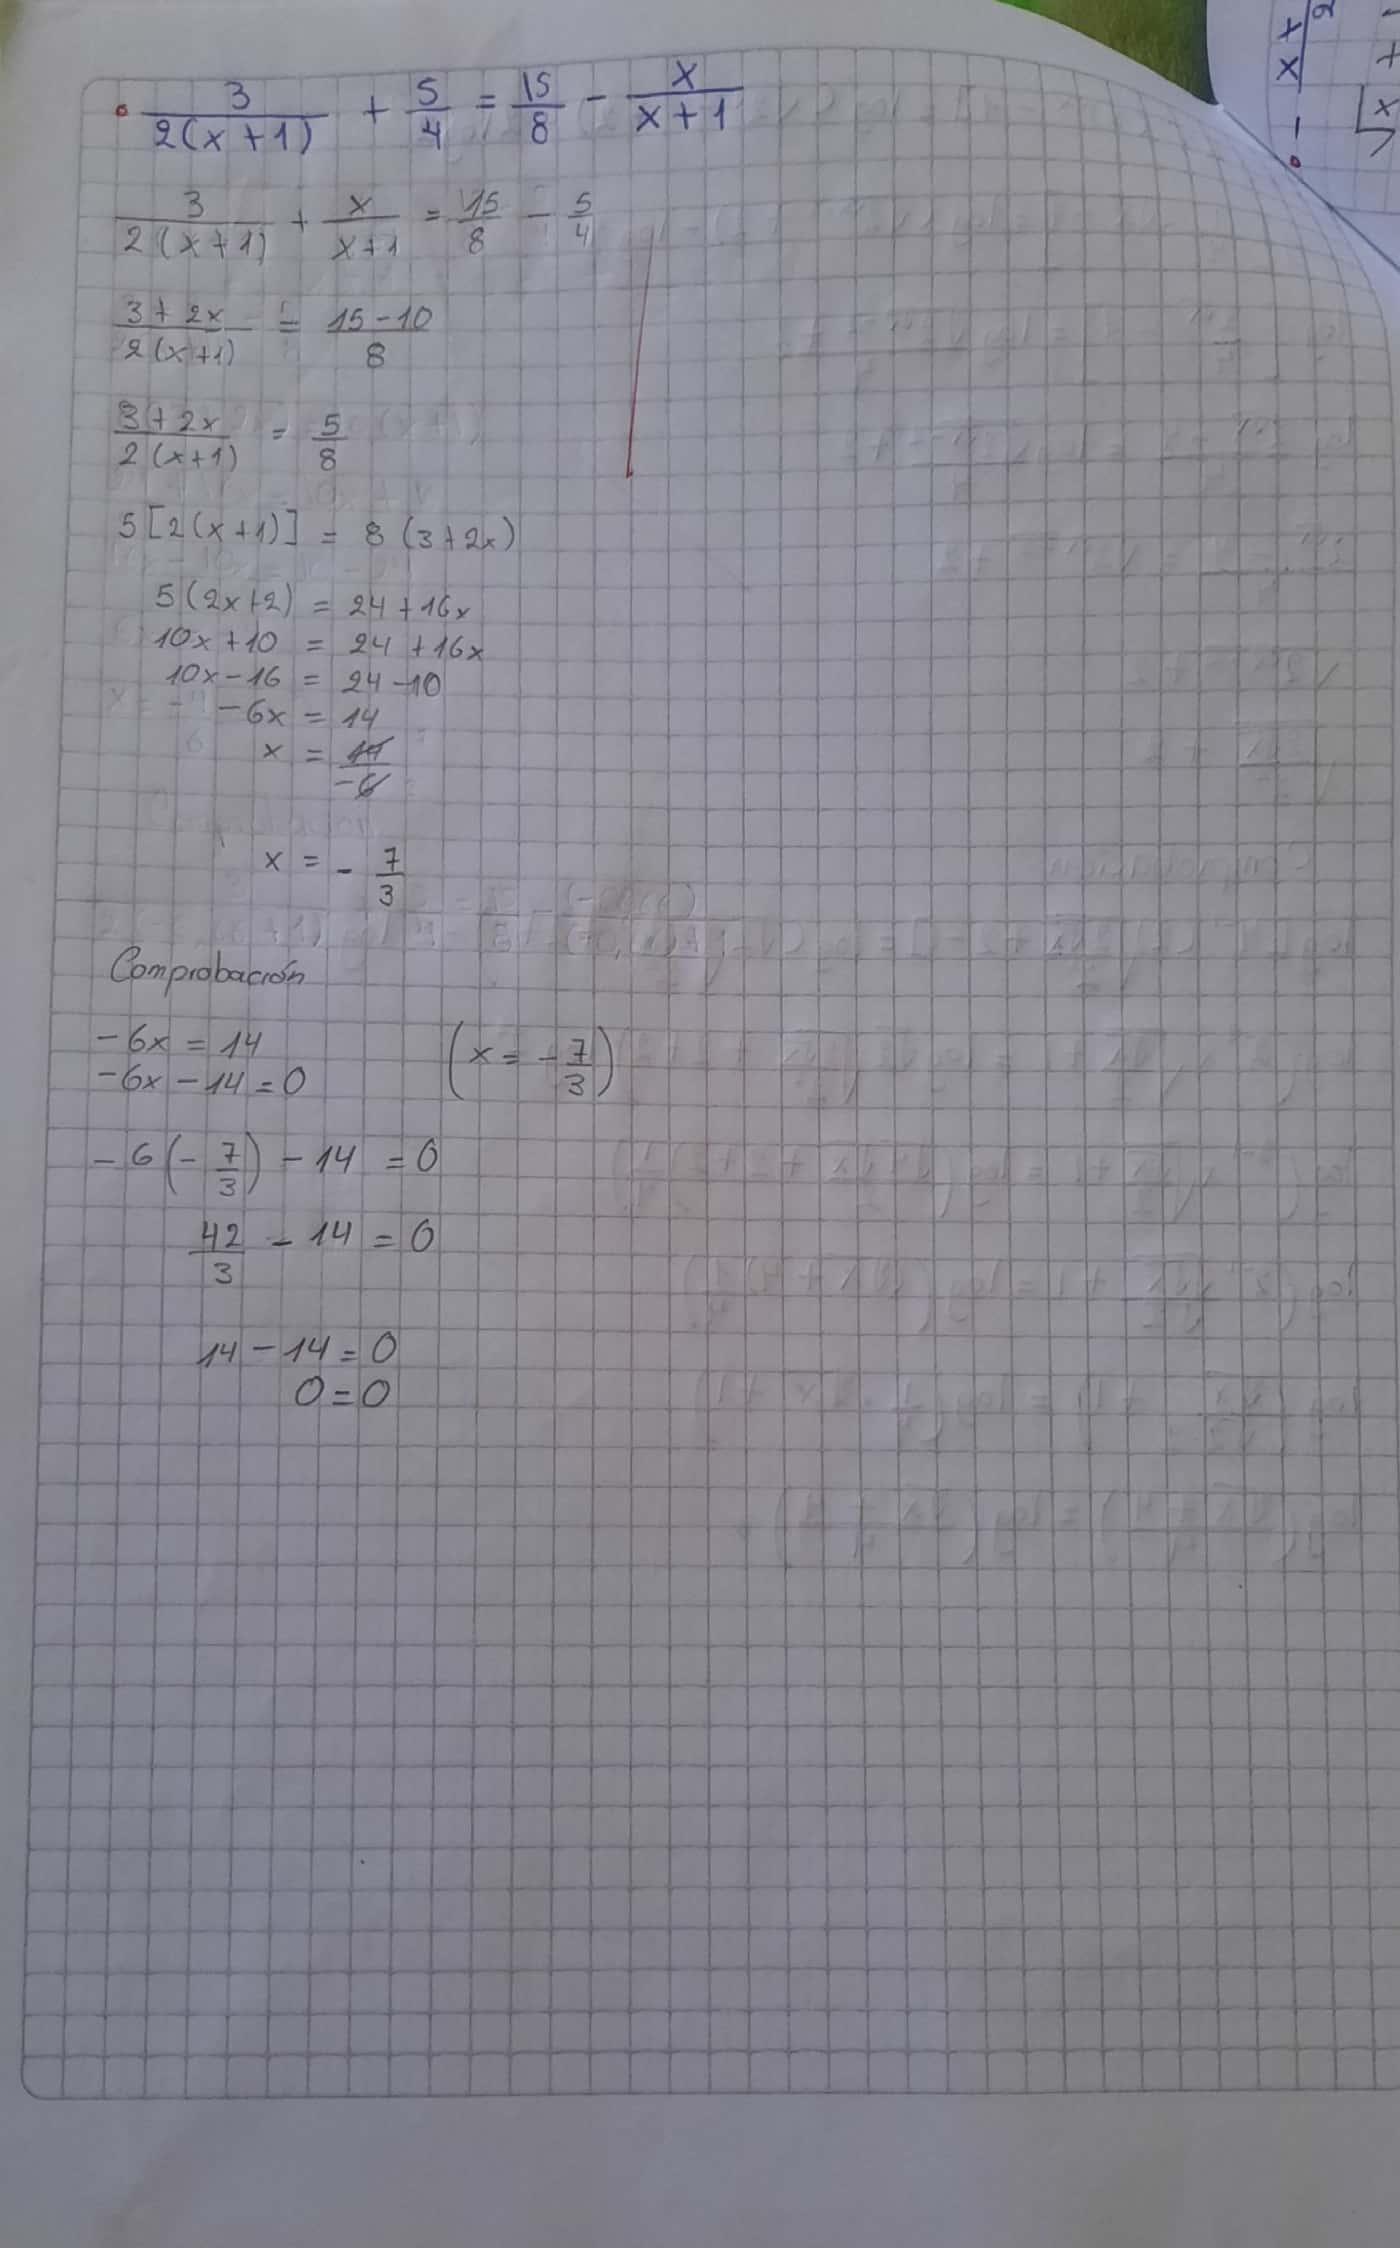 • 3/(2(x+1)) + 5/4 = 15/8 - x/(x+1)
3/(2(x+1)) + x/(x+1) = 15/8 - 5/4
(3+2x)/(2(x+1)) = (15-10)/8
(3+2x)/(2(x+1)) = 5/8
5[2(x+1)] = 8(3+2x)
5(2x+2) = 24+16x
10x+10 = 24+16x
10x-16 = 24-10
-6x = 14
x = 14/-6
x = - 7/3
Comprobación
-6x = 14 (x = - 7/3)
-6x-14=0
-6(- 7/3) -14 = 0
42/3 - 14 = 0
14-14=0
0=0